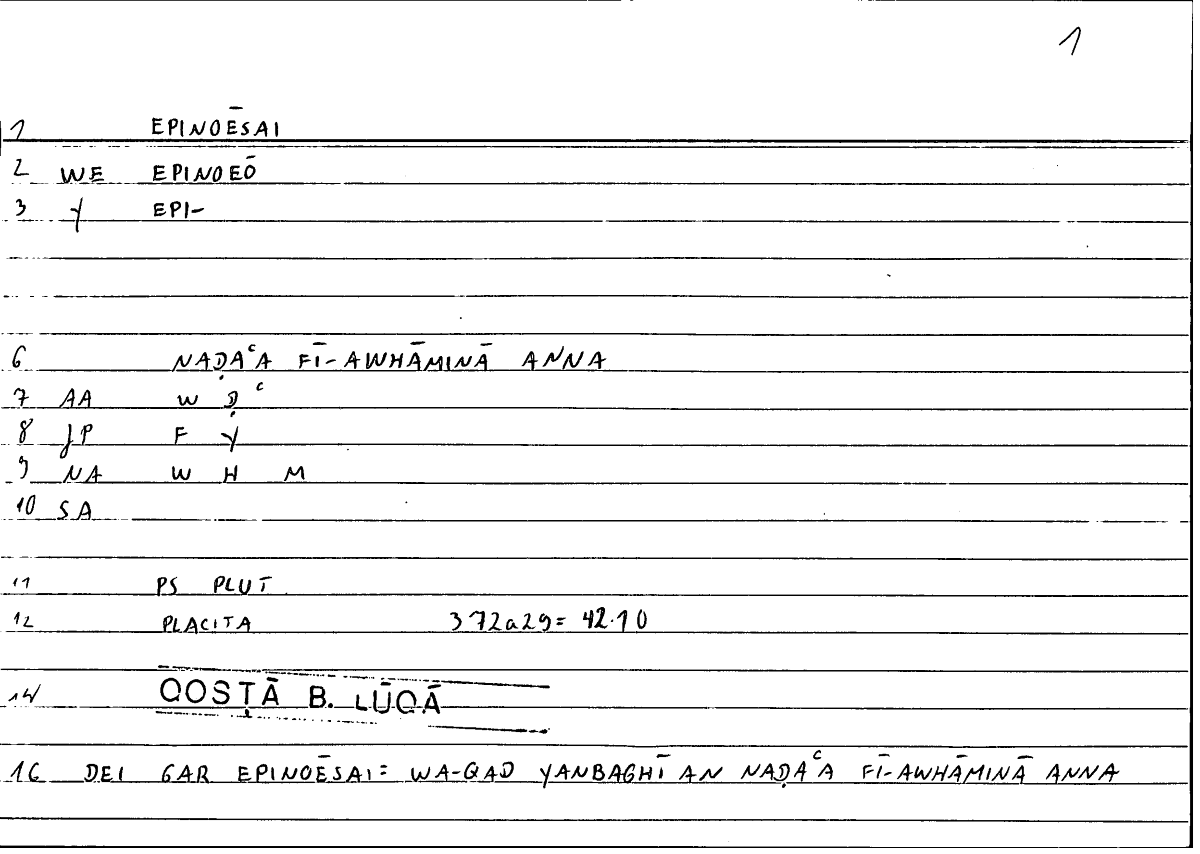 1
1 EPINOĒSAI
2 WE EPINOEŌ
3 Y EPI-
6 NAḌAʿA FĪ-AWHĀMINĀ ANNA
7 AA W Ḍ ʿ
8 JP F Y
9 NA W H M
10 SA
11 PS PLUT
12 PLACITA 372a29= 42.10
14 QOSṬĀ B. LŪQĀ
16 DEI GAR EPINOĒSAI= WA-QAD YANBAGHĪ AN NAḌAʿA FĪ-AWHĀMINĀ ANNA